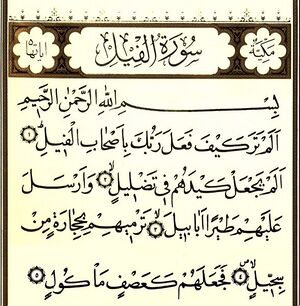 مكية
سورة الفيل
اياتها ٥
بِسْمِ اللهِ الرَّحْمٰنِ الرَّحِيْمِ
اَلَمْ تَرَ كَيْفَ فَعَلَ رَبُّكَ بِاَصْحَابِ الْفِيْلِ ۝١
اَلَمْ يَجْعَلْ كَيْدَهُمْ فِيْ تَضْلِيْلٍ ۝٢ وَاَرْسَلَ
عَلَيْهِمْ طَيْرًا اَبَابِيْلَ ۝٣ تَرْمِيْهِمْ بِحِجَارَةٍ مِنْ
سِجِّيْلٍ ۝٤ فَجَعَلَهُمْ كَعَصْفٍ مَأْكُوْلٍ ۝٥